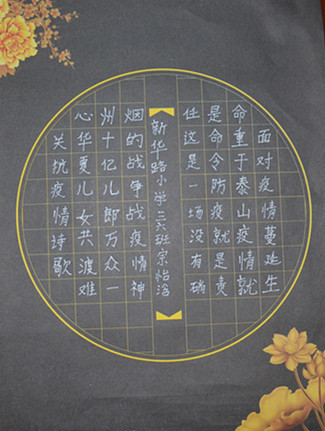 面对疫情蔓延生
命重于泰山疫情就
是命令防疫就是责
任这是一场没有硝
新华路小学三六班宗怡
烟的战争战疫情神
州十亿儿郎万众一
心华夏儿女共渡难
关抗疫情诗歌